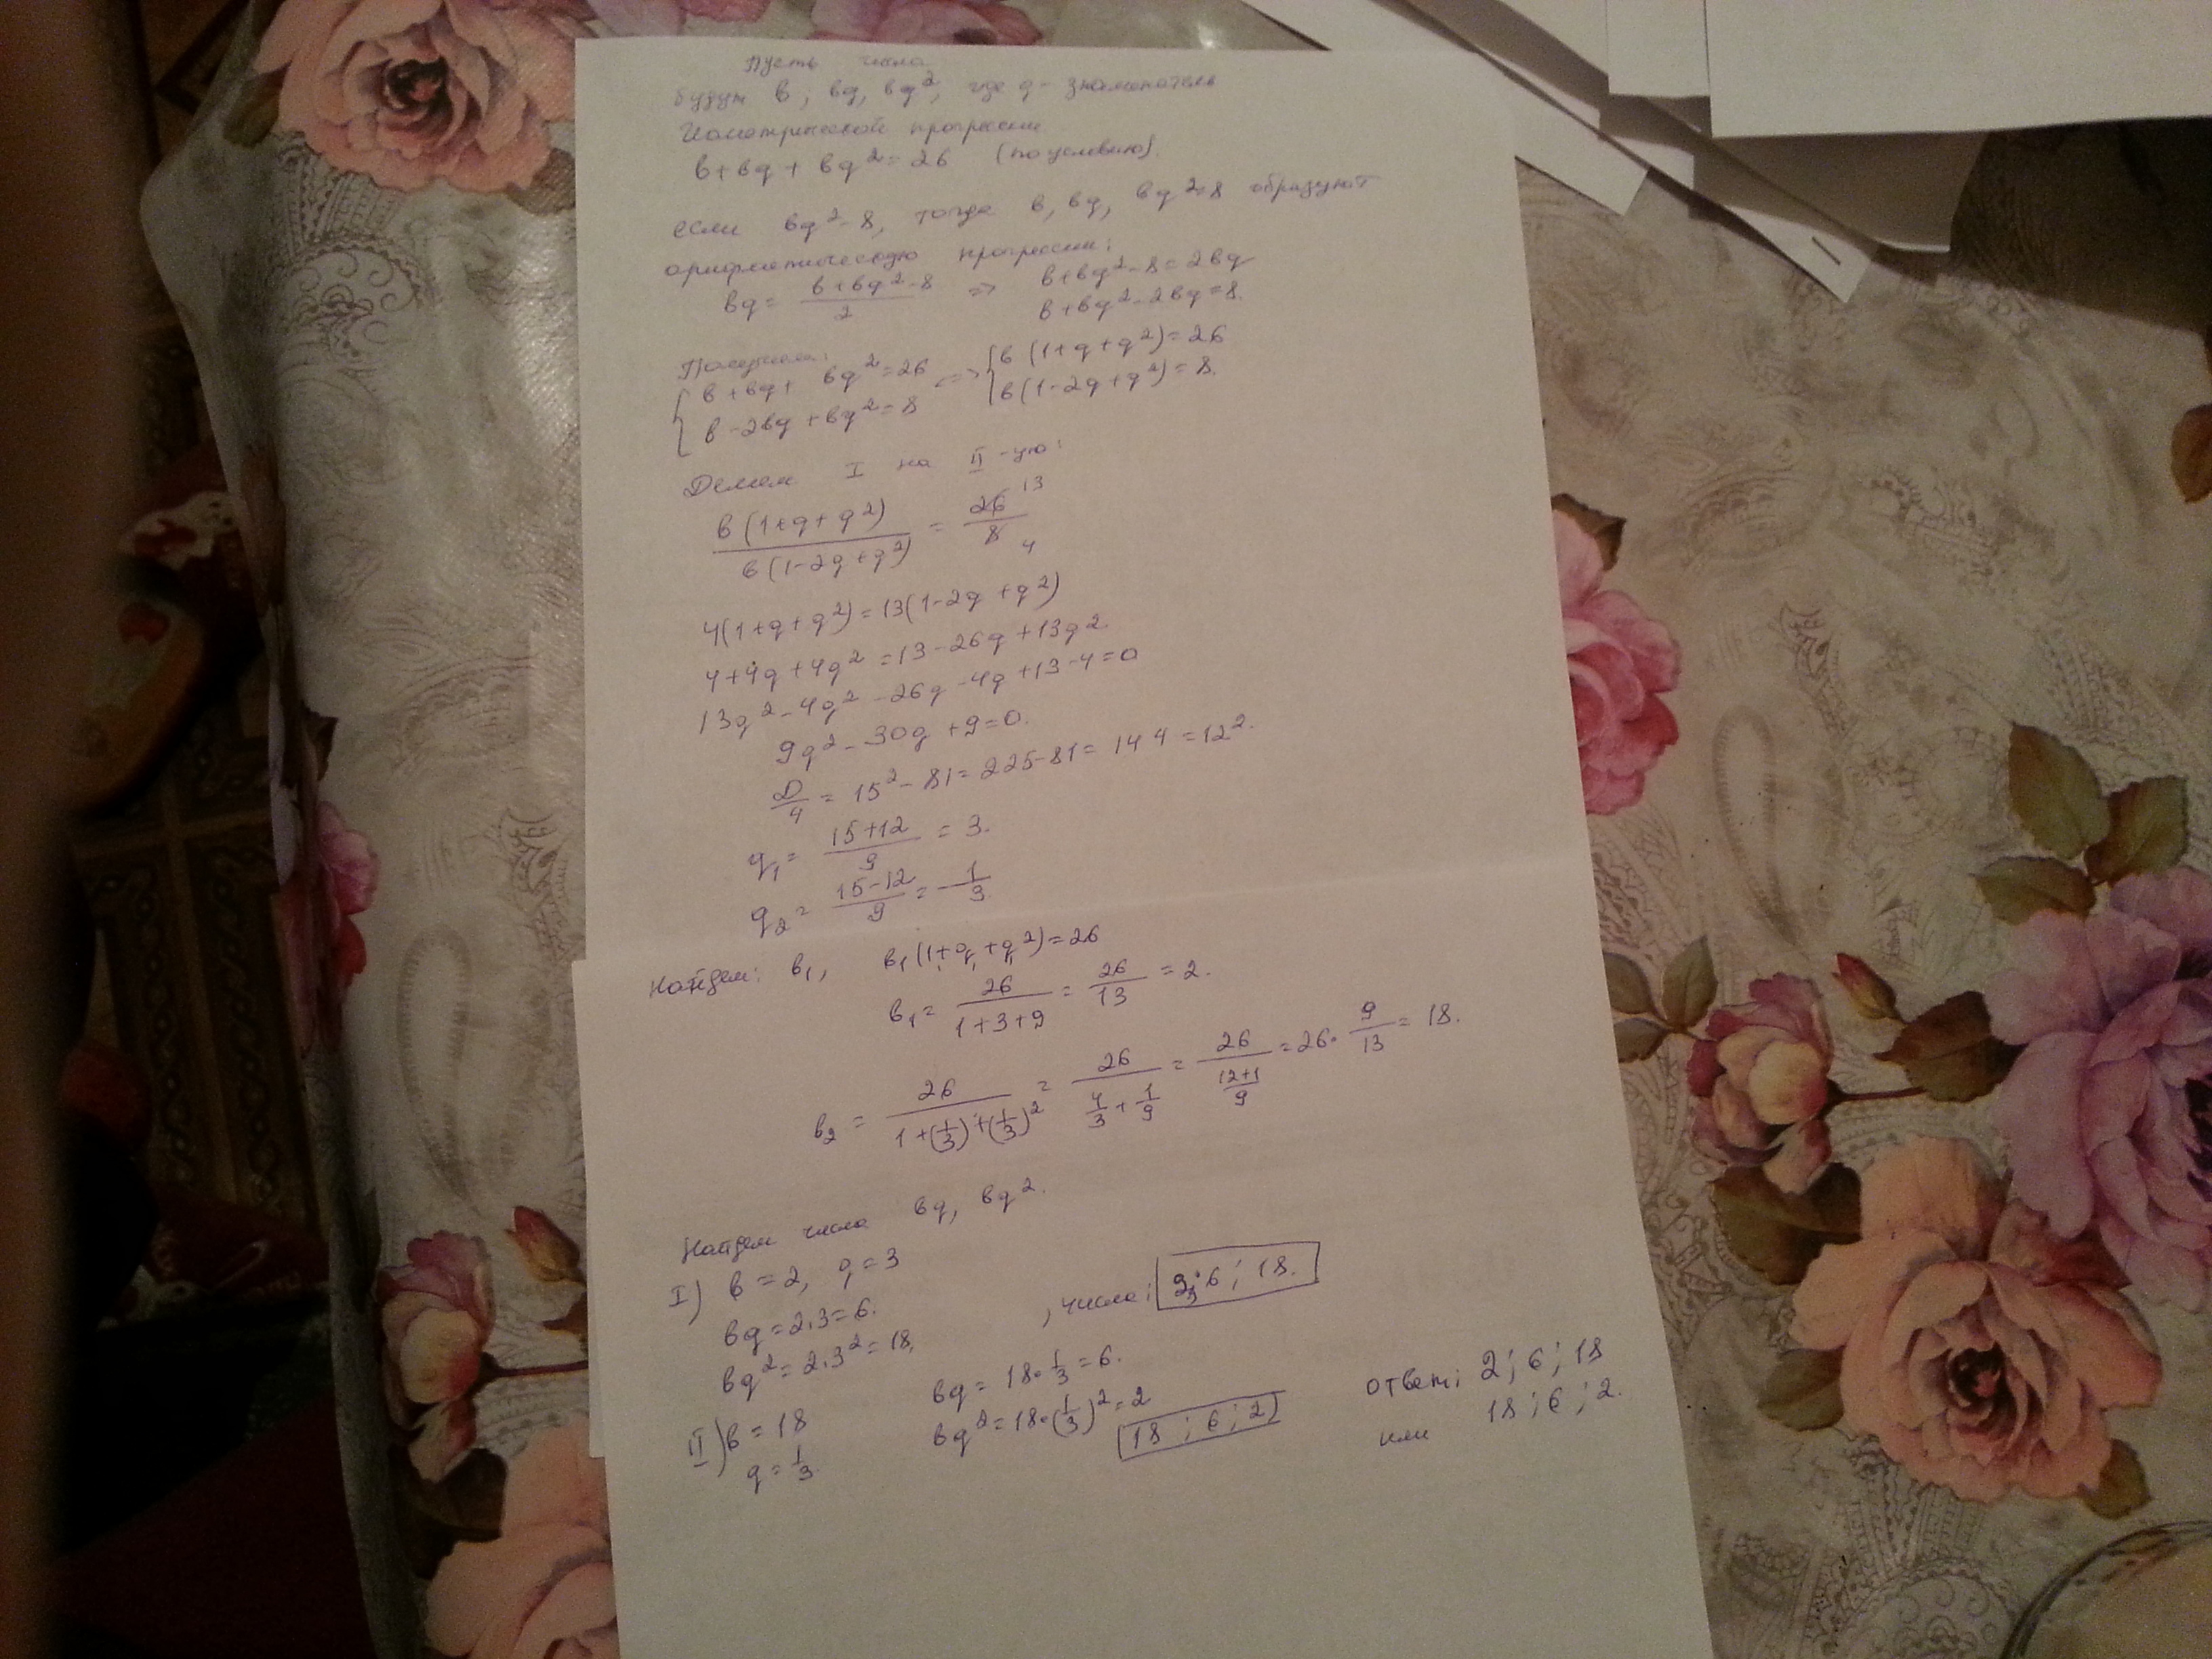 Пусть числа
будут b, bq, bq², где q - знаменатель
геометрической прогрессии
b+bq+bq²=26 (по условию).
если bq²-8, тогда b, bq, bq²-8 образуют
арифметическую прогрессии:
bq = (b+bq²-8)/2 => b+bq²-8=2bq
b+bq²-2bq=8.
Получим:
{ b+bq+bq²=26 <=> { b(1+q+q²)=26
b-2bq+bq²=8 b(1-2q+q²)=8.
Делим I на II-ую:
b(1+q+q²)/b(1-2q+q²) = 26/8 13 4
4(1+q+q²)=13(1-2q+q²)
4+4q+4q²=13-26q+13q²
13q²-4q²-26q-4q+13-4=0
9q²-30q+9=0.
D/4 = 15²-81=225-81=144=12².
q₁= (15+12)/9 = 3.
q₂= (15-12)/9 = -1/3
Найдем: b₁, b₁(1+q+q²)=26
b₁= 26/(1+3+9) = 26/13 = 2.
b₂ = 26/(1+(1/3)+(1/3)²) = 26/(4/3+1/9) = 26/((12+1)/9) = 26·9/13 = 18.
Найдем числа bq, bq².
I) b=2, q=3
bq=2·3=6. , числа: 2;6;18.
bq²=2·3²=18,
II) b=18 bq=18·1/3=6.
q=1/3. bq²=18·(1/3)²=2
18;6;2
ответ: 2;6;18
или 18;6;2.